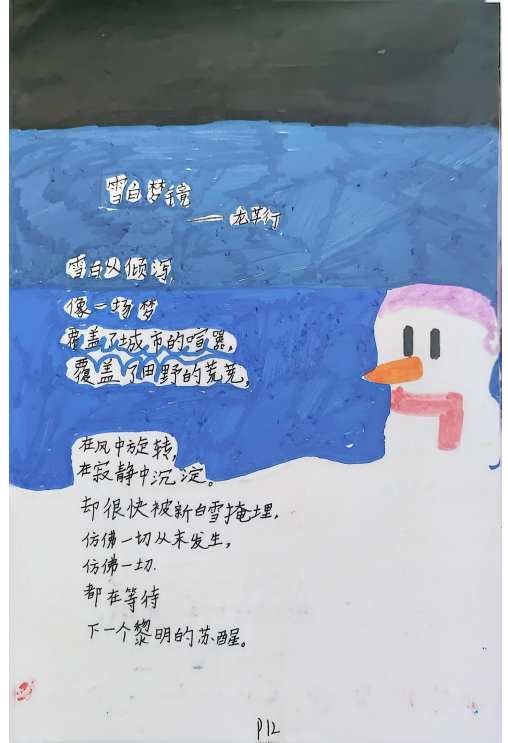 雪白梦境
—— 龙莘行
雪白从倾泻,
像一场梦
覆盖了城市的喧嚣,
覆盖了田野的荒芜,
在风中旋转,
在寂静中沉淀。
却很快被新白雪掩埋,
仿佛一切从未发生,
仿佛一切.
都在等待
下一个黎明的苏醒。
P12